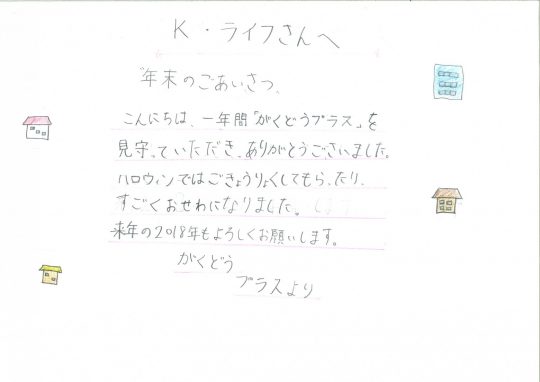 K・ライフさんへ
年末のごあいさつ、
こんにちは、一年間「がくどうプラス」を
見守っていただき、ありがとうございました。
ハロウィンではごきょうりょくしてもらったり、
すごくおせわになりました。
来年の2018年もよろしくお願いします。
がくどう
プラスより